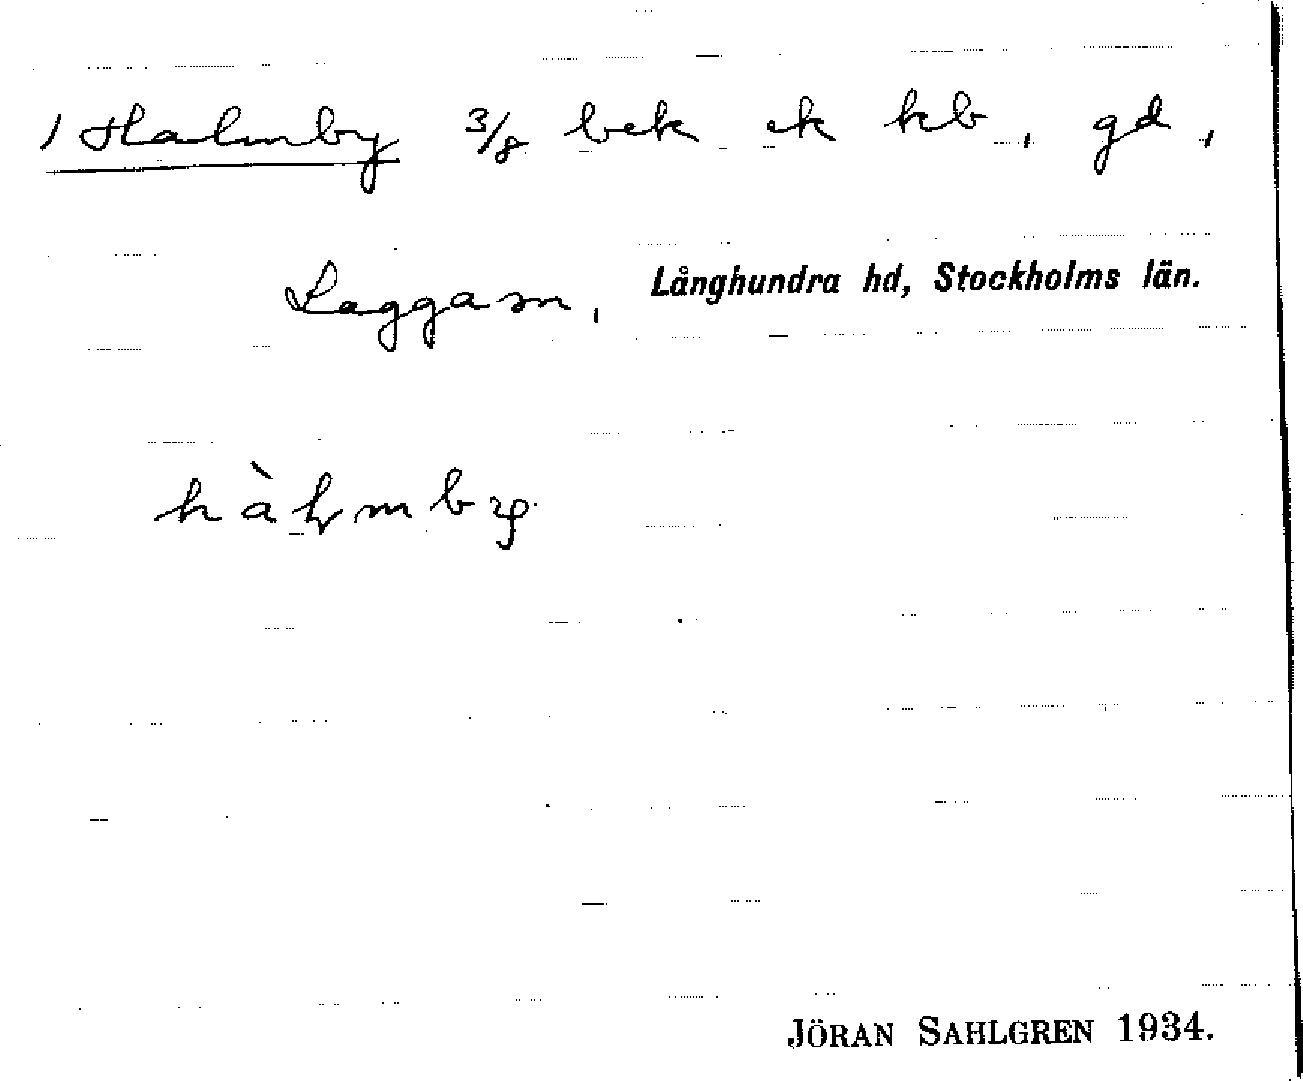 1 Halmby 3/8 bek ek kb, gd,
Laggam, Långhundra hd, Stockholms län.
hàlmby
JÖRAN SAHLGREN 1934.